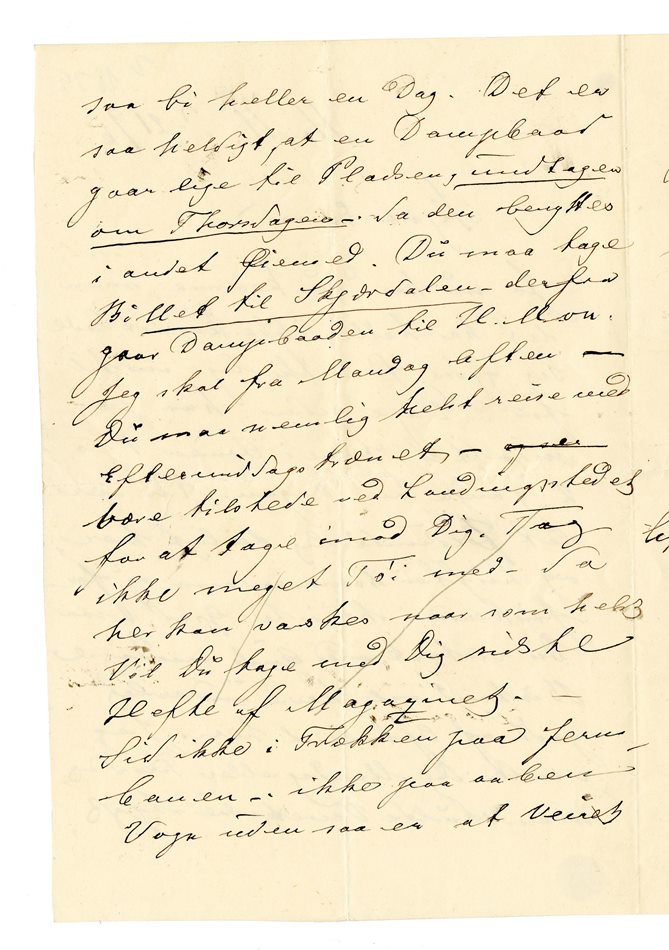 saa bi heller en Dag. Det er
saa heldigt, at en Dampbaad
gaar lige til Pladsen, undtagen
om Thorsdagen – da den benyttes
i andet Øiemed. Du maa tage
Billet til Skjærdalen – derfra
gaar Dampbaaden til H. Mon.
Jeg skal fra Mandag Aften –
Du maa nemlig helst reise med
Eftermiddagstrænet –
være tilstede ved Landingsstedet
for at tage imod Dig. Tag
ikke meget Tøi med – da
her kan vaskes naar som helst
Vil Du tage med Dig sidste
Hefte af Magazinet. –
Sid ikke i Trækken paa Jern-
banen – ikke paa aaben
Vogn uden saa er at Veiret